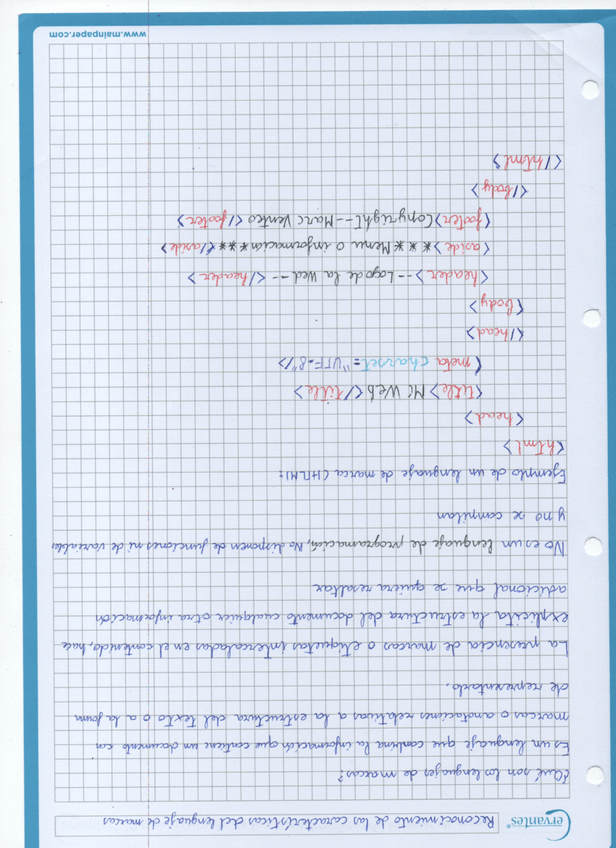 Cervantes®
Reconocimiento de las características del lenguaje de marcas
¿Qué son los lenguajes de marcas?
Es un lenguaje que combina la información que contiene un documento con
marcas o anotaciones relativas a la estructura del texto o a la forma
de representarlo.
La presencia de marcas o etiquetas intercaladas en el contenido, hace
explícita la estructura del documento cualquier otra información
adicional que se quiera resaltar
No es un lenguaje de programación, No disponen de funciones ni de variables
y no se compilan
Ejemplo de un lenguaje de marca (HTLM):
<html>
<head>
<title> Mi Web </title>
<meta charset="UTF-8"/>
</head>
<body>
<header>--Logo de la Wed--</header>
<aside>****Menu o informacion***</aside>
<footer>Copyright--Marc Ventco</footer>
</body>
</html>
www.mainpaper.com